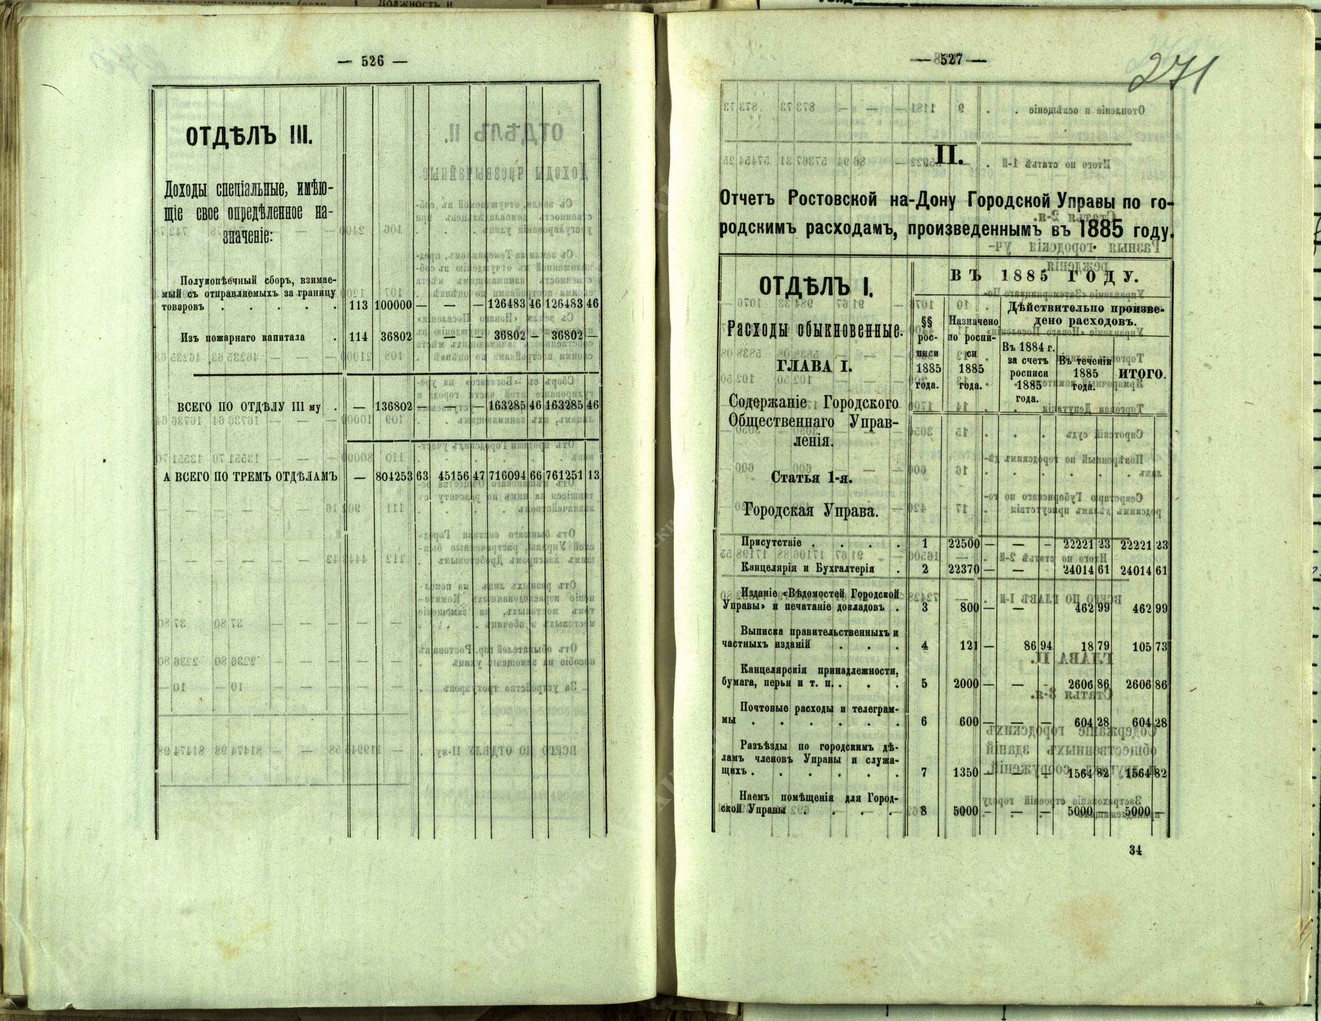 — 526 —
ОТДѢЛЪ III.
Доходы спеціальные, имѣю-
щіе свое опредѣленное на-
значеніе:
Полукопѣечный сборъ, взимае-
мый съ отправляемыхъ за границу
товаровъ . . . . 113 100000 — — — 126483 46 126483 46
Изъ пожарнаго капитала . 114 36802 — — 36802 — 36802 —
ВСЕГО ПО ОТДѢЛУ III му . — 136802 — — — 163285 46 163285 46
А ВСЕГО ПО ТРЕМЪ ОТДѢЛАМЪ — 804253 63 45156 47 716094 66 761251 13
— 527 —
271
II.
Отчетъ Ростовской на-Дону Городской Управы по го-
родскимъ расходамъ, произведеннымъ въ 1885 году.
ОТДѢЛЪ I.
Расходы обыкновенные.
ГЛАВА I.
Содержаніе Городского
Общественнаго Управ-
ленія.
Статья 1-я.
Городская Управа.
ВЪ 1885 ГОДУ.
§§
рос-
писи
1885
года.
Назначено
по роспи-
си
1885
года.
Дѣйствительно произве-
дено расходовъ.
Въ 1884 г.
за счетъ
росписи
1885
года.
Въ теченіи
1885
года.
ИТОГО.
Присутствіе . . . . 1 22500 — — — 22221 23 22221 23
Канцелярія и Бухгалтерія . 2 22370 — — 24014 61 24014 61
Изданіе «Вѣдомостей Городской
Управы» и печатаніе докладовъ . 3 800 — — 462 99 462 99
Выписка правительственныхъ и
частныхъ изданій . . . 4 121 — 86 94 18 79 105 73
Канцелярскія принадлежности,
бумага, перья и т. п. . . . 5 2000 — — - 2606 86 2606 86
Почтовые расходы и телеграм-
мы . . . . . . 6 600 — — — 604 28 604 28
Разъѣзды по городскимъ дѣ-
ламъ членовъ Управы и служа-
щихъ . . . . . . 7 1350 — — — 1564 82 1564 82
Наемъ помѣщенія для Город-
ской Управы . . . . 8 5000 — — — 5000 — 5000 —
34